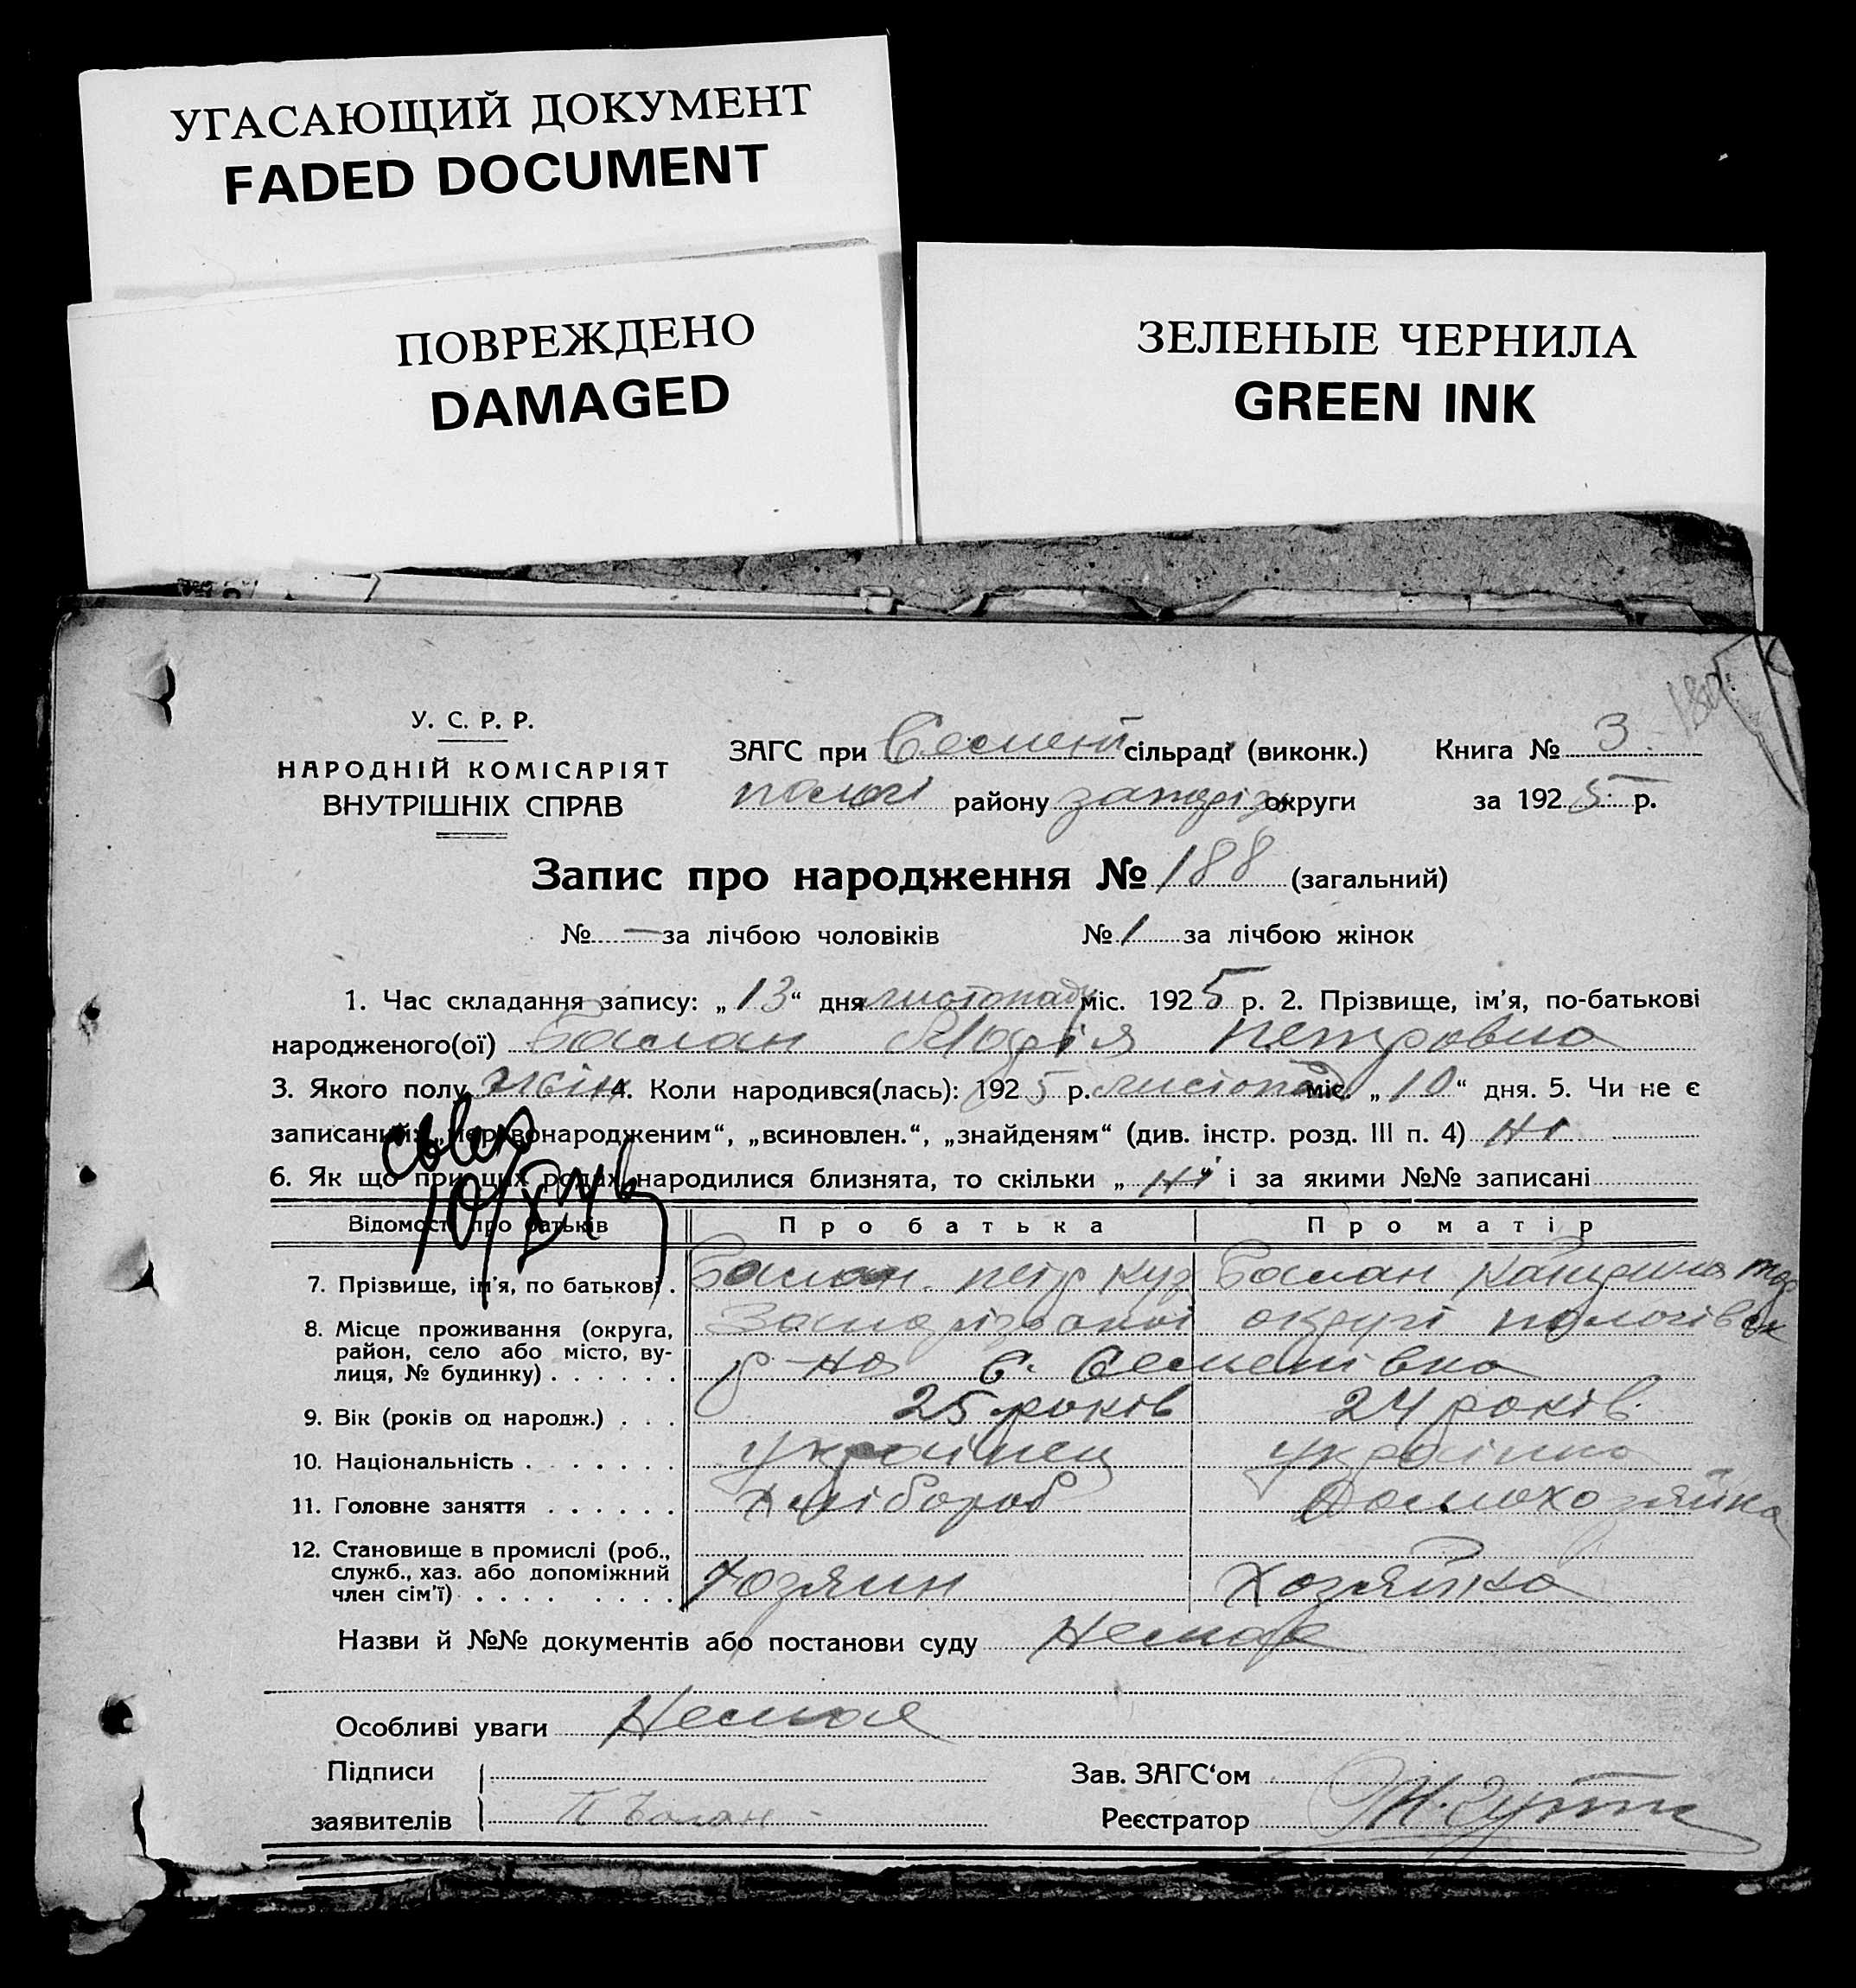 УГАСАЮЩИЙ ДОКУМЕНТ
FADED DOCUMENT
ПОВРЕЖДЕНО
DAMAGED
ЗЕЛЕНЫЕ ЧЕРНИЛА
GREEN INK
У. С. Р. Р.
НАРОДНІЙ КОМІСАРІЯТ
ВНУТРІШНІХ СПРАВ
ЗАГС при Семен сільраді (виконк.)
пологі району запоріз округи
Книга № 3
за 1925 р.
Запис про народження № 188 (загальний)
№ — за лічбою чоловіків № 1 за лічбою жінок
1. Час складання запису: „13“ дня листопаду міс. 1925 р. 2. Прізвище, ім'я, по-батькові
народженого(ої) Баслан Марія петровна
3. Якого полу жін 4. Коли народився(лась): 1925 р. листопад міс. „10“ дня. 5. Чи не є
записаний: „мертвонародженим“, „всиновлен.“, „знайденям“ (див. інстр. розд. III п. 4) Ні
6. Як що при цих родах народилися близнята, то скільки „Ні“ і за якими №№ записані
Відомості про батьків Про батька Про матір
7. Прізвище, ім'я, по батькові . Баслан петр Куз Баслан Катерина
8. Місце проживання (округа, Запорізької округі пологівск
район, село або місто, ву-
лиця, № будинку) . . . . . . р-на с. Семенівка
9. Вік (років од народж.) . . . 25 років 24 років
10. Національність . . . . . . . українец українка
11. Головне заняття . . . . . . Хлібороб Домохозяйка
12. Становище в промислі (роб.,
служб., хаз. або допоміжний
член сім'ї) . . . . . . . . Хозяин Хозяйка
Назви й №№ документів або постанови суду Немае
Особливі уваги Немае
Підписи
заявителів
Зав. ЗАГС‘ом
Реєстратор